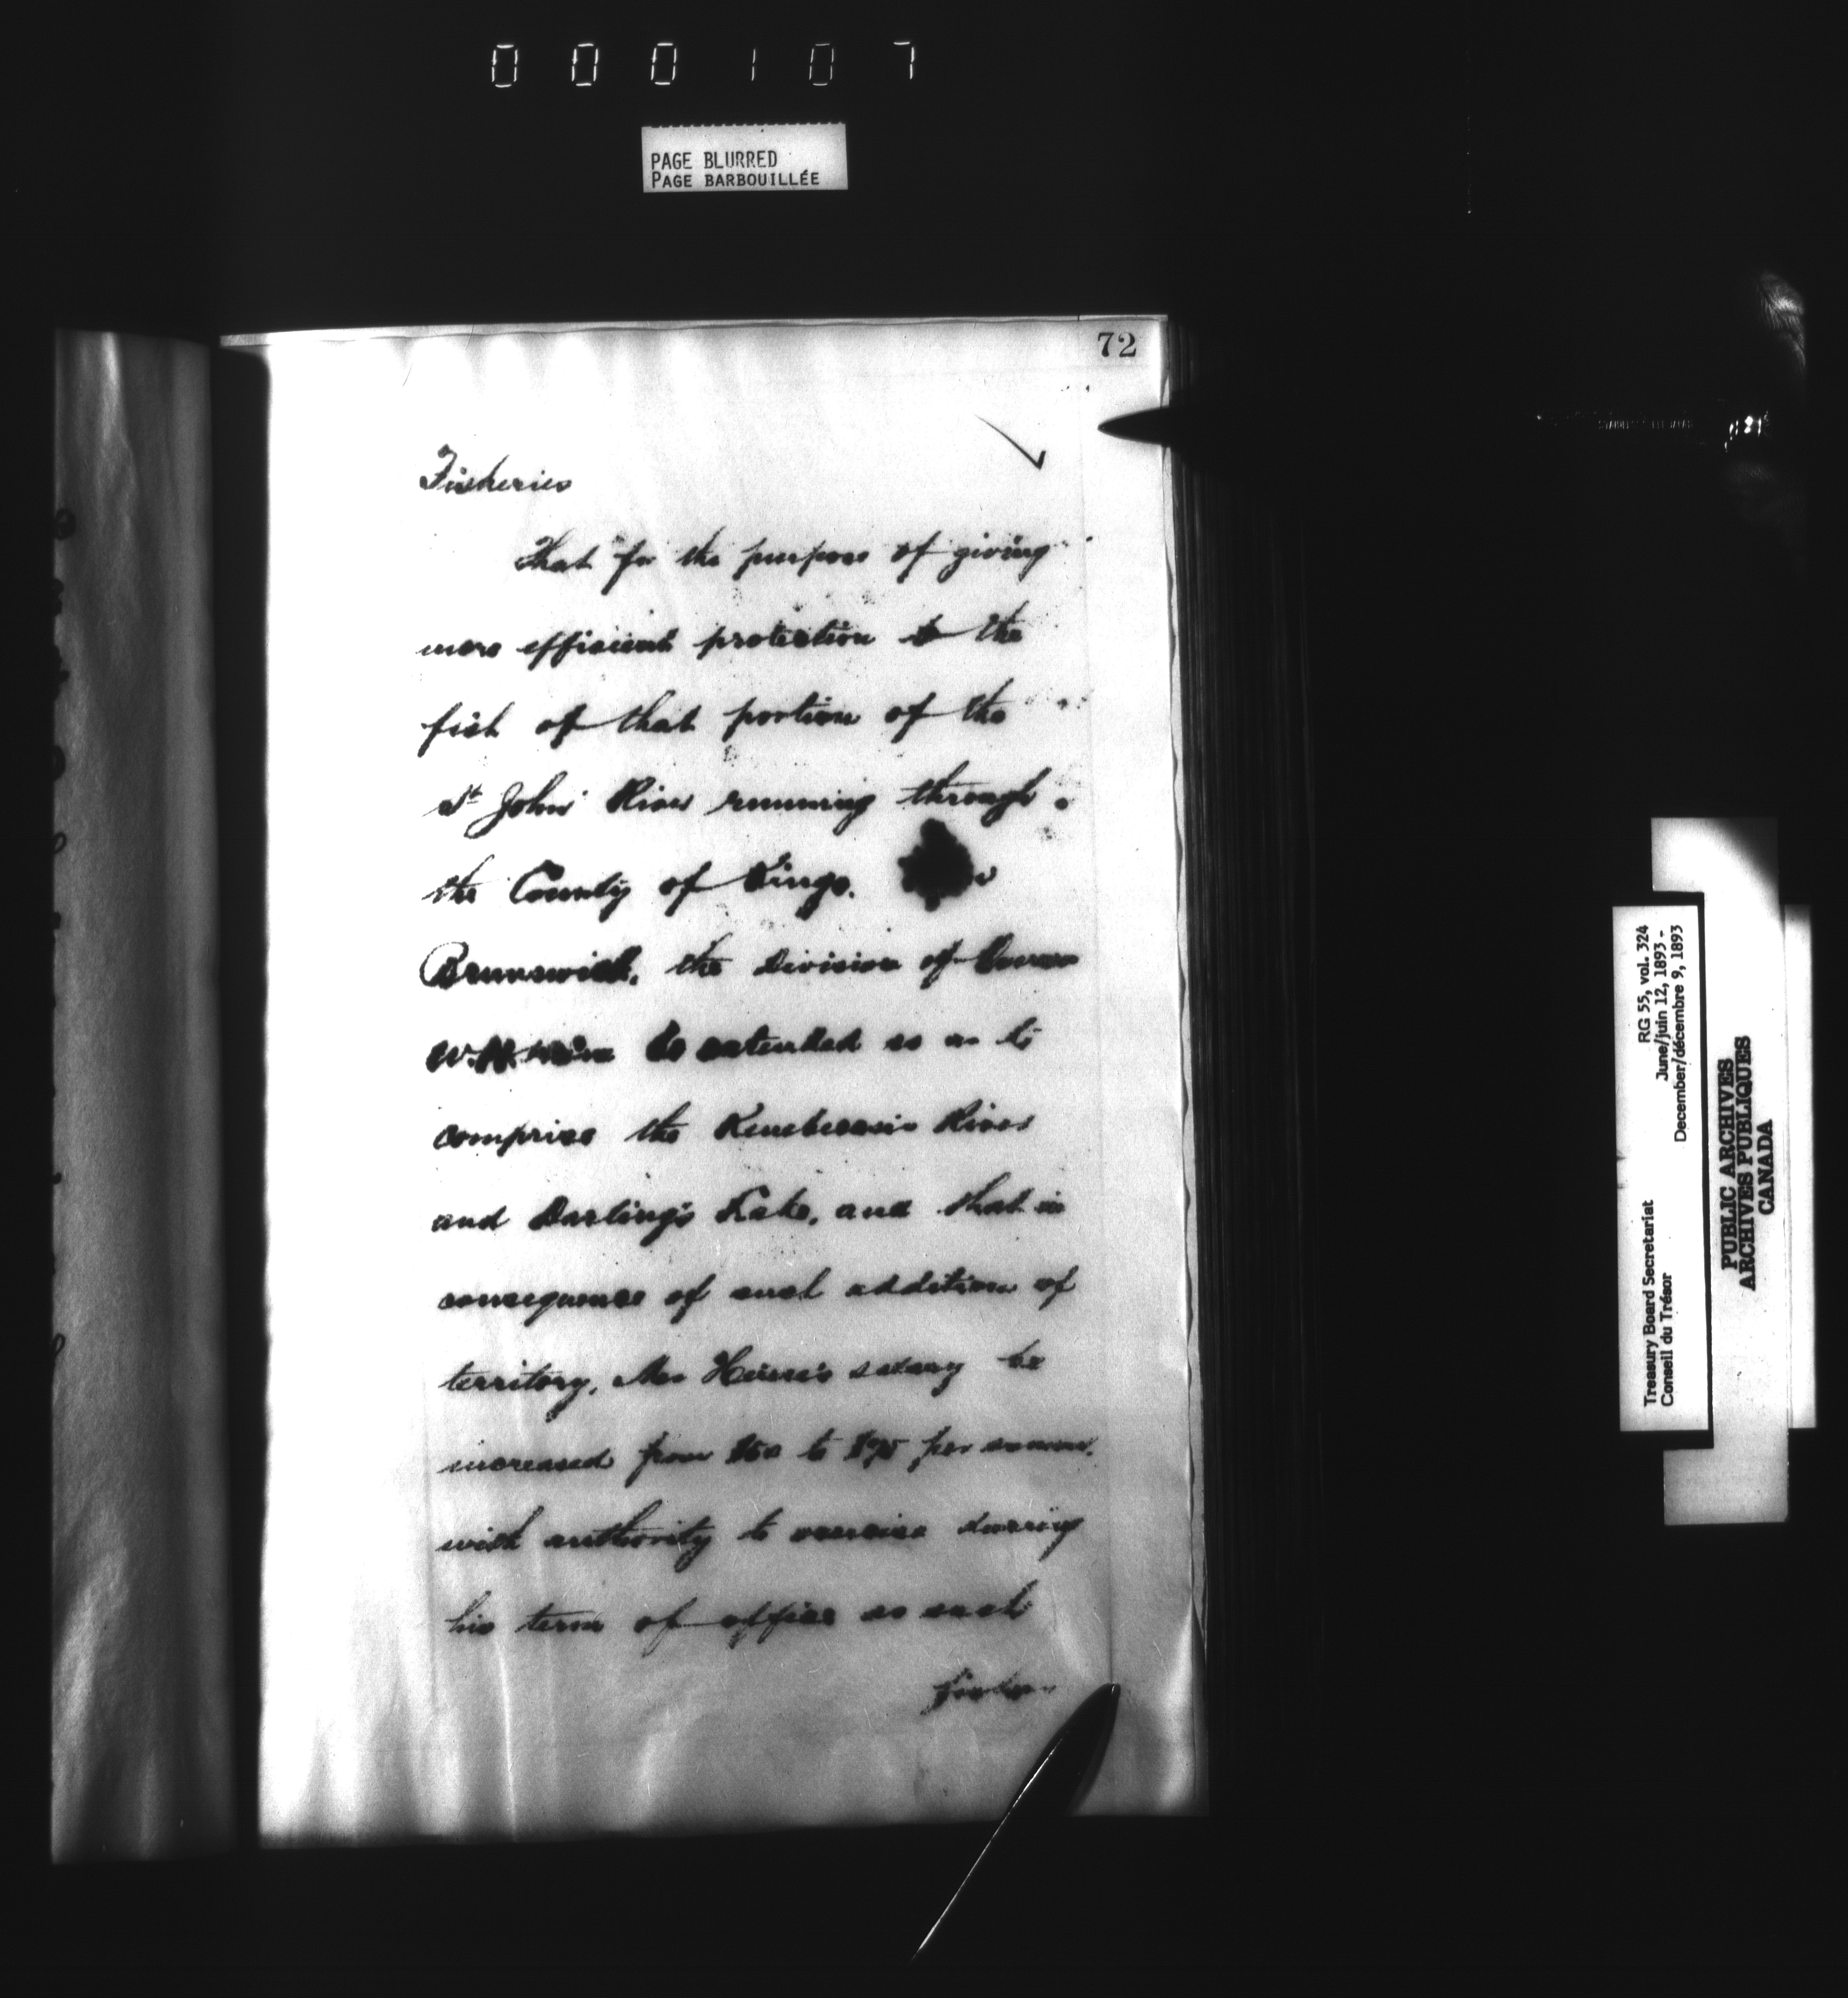 000107
PAGE BLURRED
PAGE BARBOUILLÉE
72
Fisheries
That for the purpose of giving
more efficient protection to the
fish of that portion of the
St John River running through
the County of Kings.
Brunswick, the division of
W.H. be extended so as to
comprise the Kennebecasis River
and Darling's Lake, and that in
consequence of such addition of
territory, Mr salary be
increased from to per annum,
with authority to exercise during
his term of office as such
RG 55, vol. 324
June/juin 12, 1893 -
December/décembre 9, 1893
Treasury Board Secretariat
Conseil du Trésor
PUBLIC ARCHIVES
ARCHIVES PUBLIQUES
CANADA